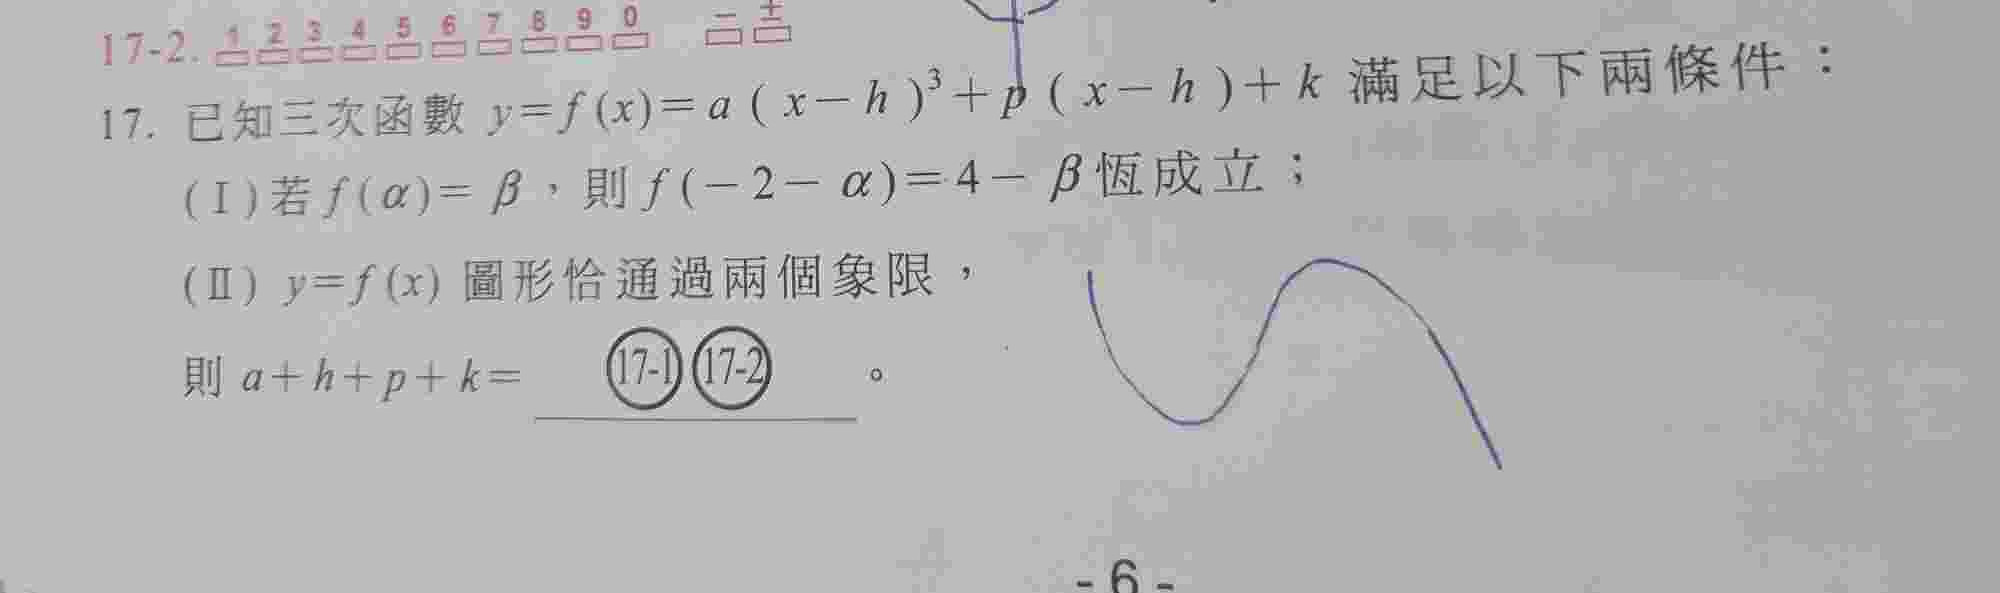 17-2. 1 2 3 4 5 6 7 8 9 0 − ±
17. 已知三次函數 y=f(x)=a(x−h)³+p(x−h)+k 滿足以下兩條件：
(Ⅰ)若f(α)=β，則f(−2−α)=4−β恆成立；
(Ⅱ) y=f(x) 圖形恰通過兩個象限，
則 a+h+p+k= 17-1 17-2 。
- 6 -